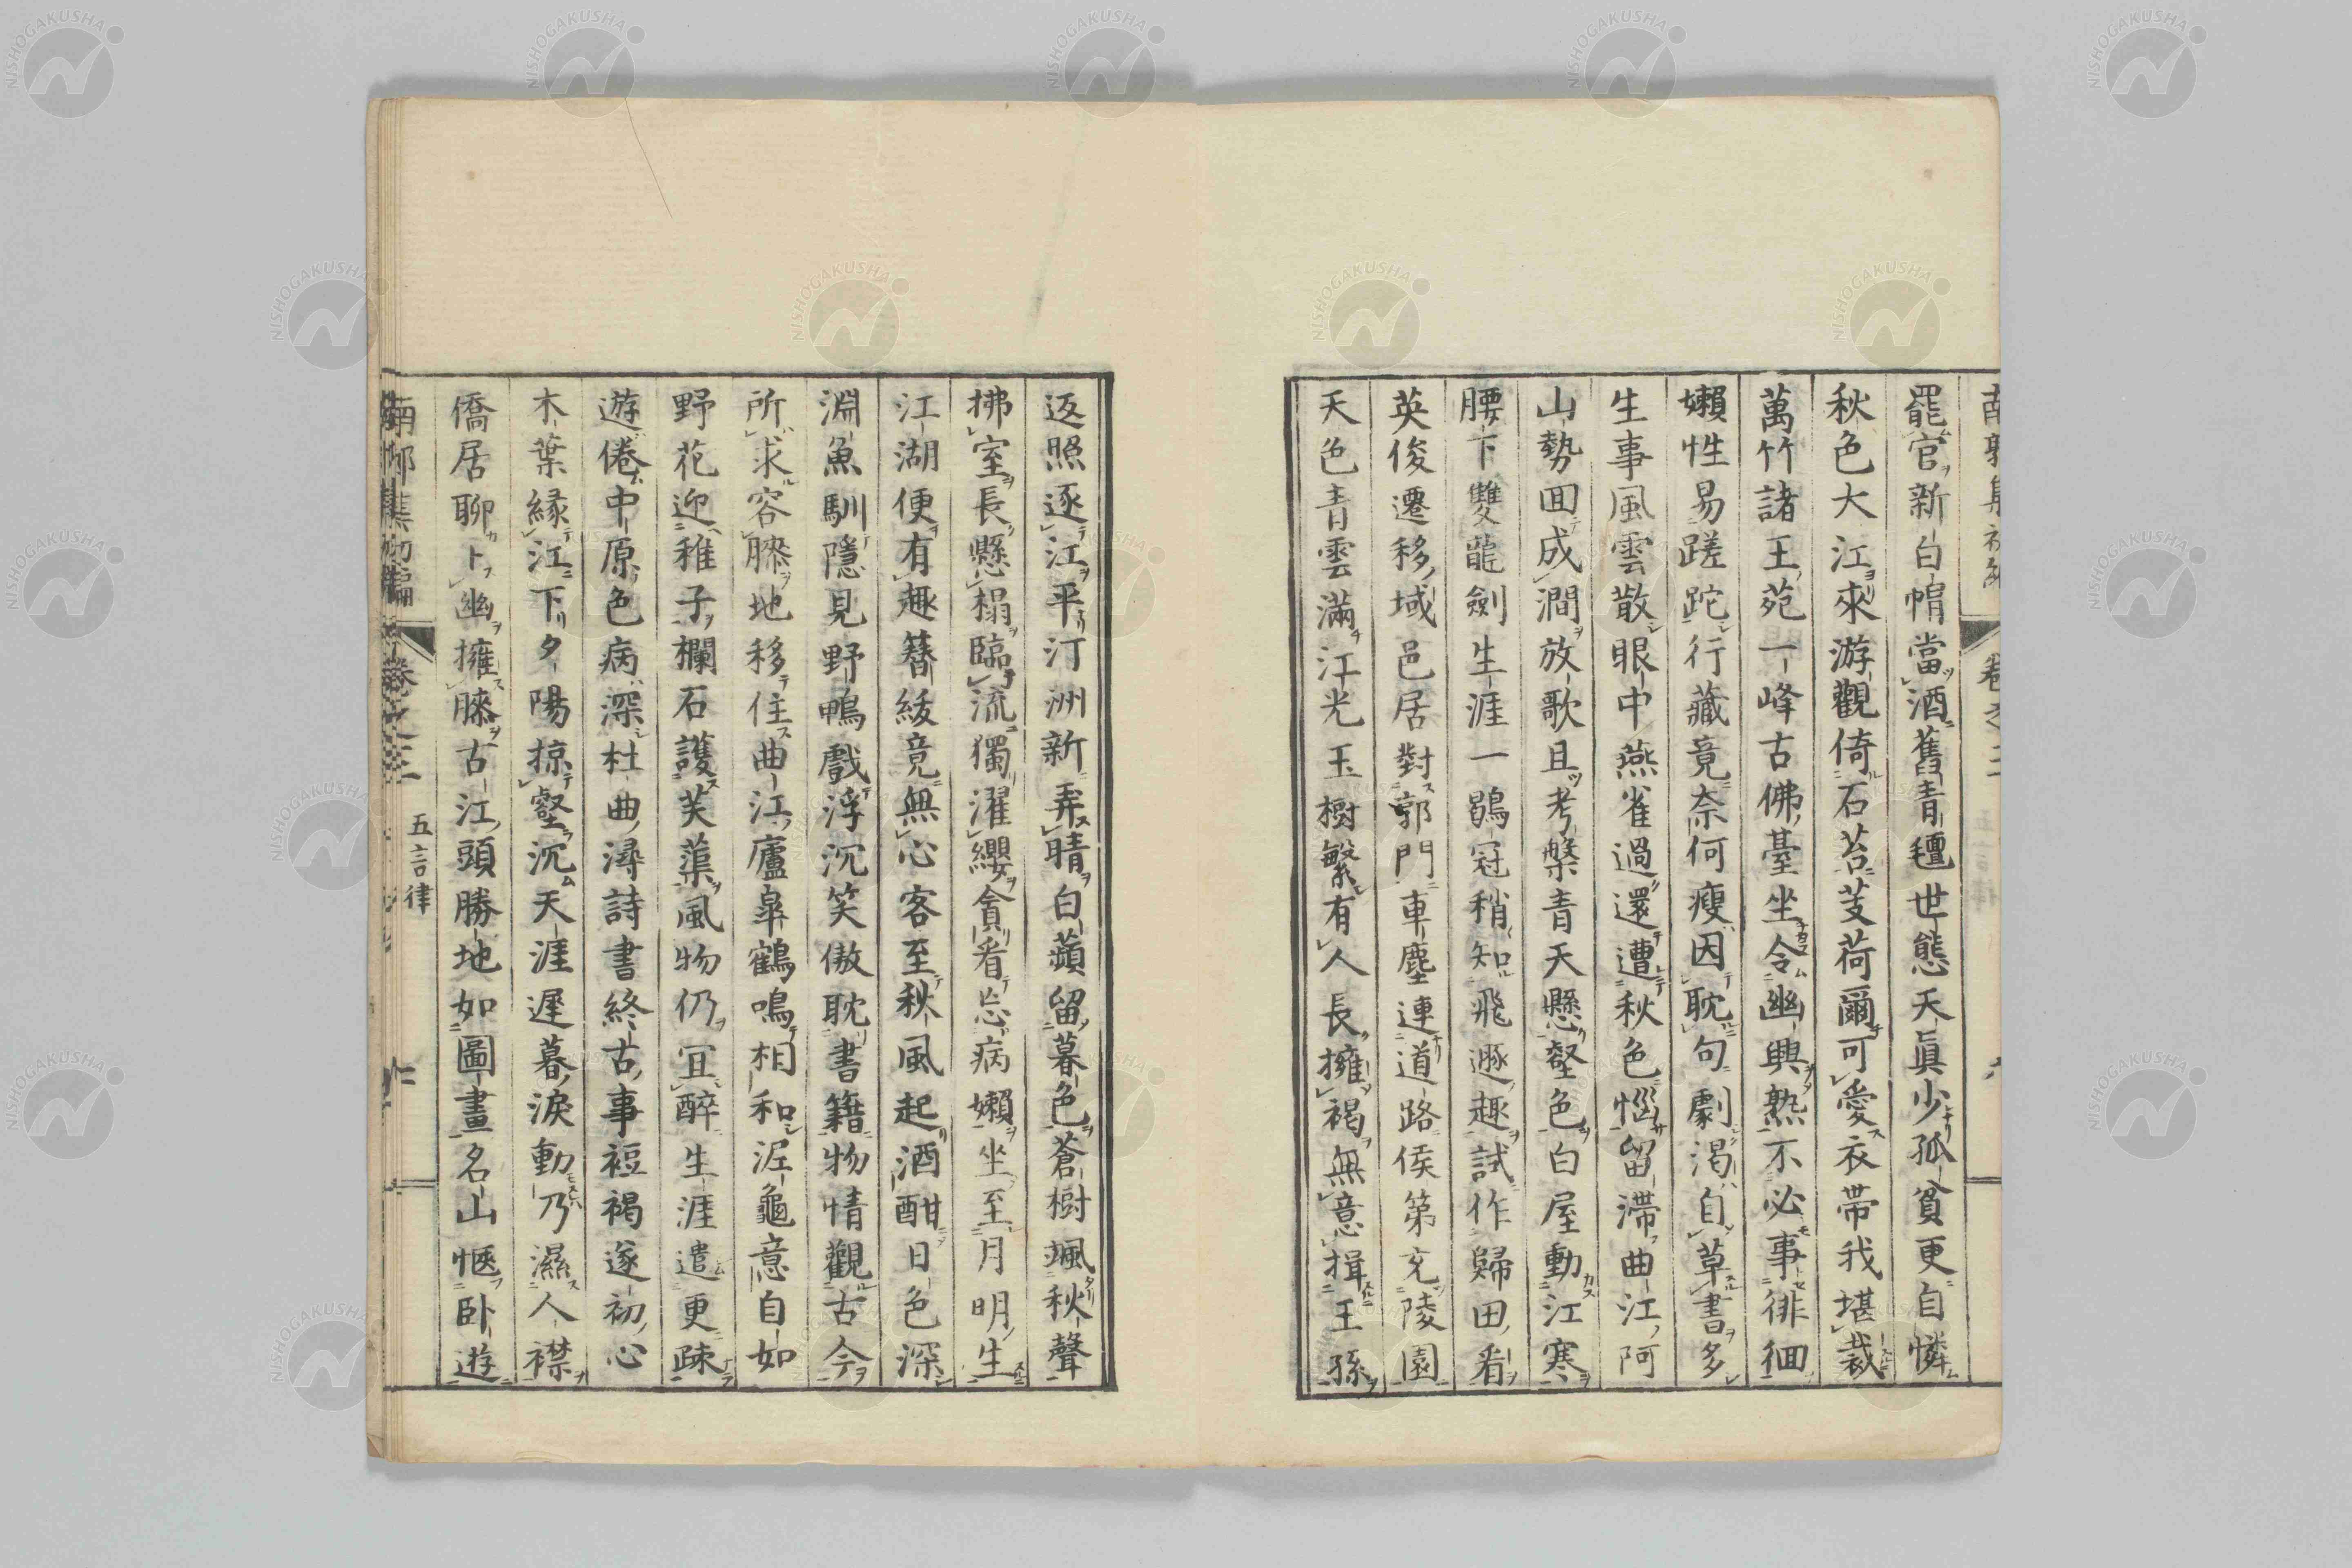 罷官新白帽當酒舊青氊世態天眞少孤貧更自憐
秋色大江來游觀倚石苔芰荷爾可愛衣帶我堪裁
萬竹諸王苑一峰古佛臺坐令幽興熟不必事徘徊
嬾性易蹉跎行藏竟奈何瘦因耽句劇渇自草書多
生事風雲散眼中燕雀過還遭秋色惱留滯曲江阿
山勢回成澗放歌且考槃青天懸壑色白屋動江寒
腰下雙龍劍生涯一鶡冠稍知飛遯趣試作歸田看
英俊遷移域邑居對郭門車塵連道路侯第充陵園
天色青雲滿江光玉樹繁有人長擁褐無意揖王孫
返照逐江平汀洲新弄晴白蘋留暮色蒼樹颯秋聲
拂室長懸榻臨流獨濯纓貪看忘病嬾坐至月明生
江湖便有趣簪紱竟無心客至秋風起酒酣日色深
淵魚馴隱見野鴨戲浮沉笑傲耽書籍物情觀古今
所求容膝地移住曲江廬皐鶴鳴相和泥龜意自如
野花迎稚子欄石護芙蕖風物仍宜醉生涯遣更疎
遊倦中原色病深杜曲潯詩書終古事裋褐遂初心
木葉緣江下夕陽掠壑沉天涯遲暮淚動乃濕人襟
僑居聊卜幽擁膝古江頭勝地如圖畫名山愜臥遊
五言律
南郭集初編 卷之三
NISHOGAKUSHA